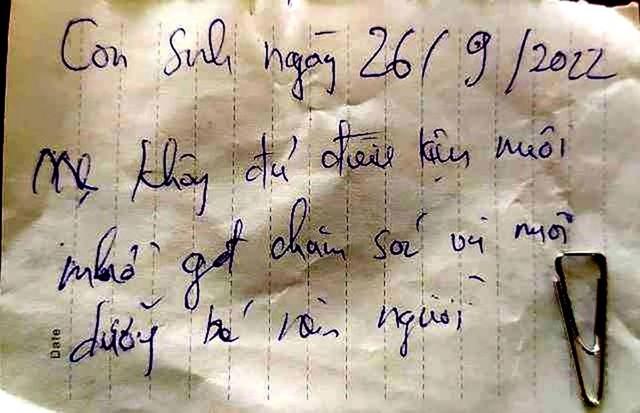 Con sinh ngày 26/9/2022
Mẹ không đủ điều kiện nuôi
nhờ gđ chăm sóc và nuôi
dưỡng bé nên người
Date